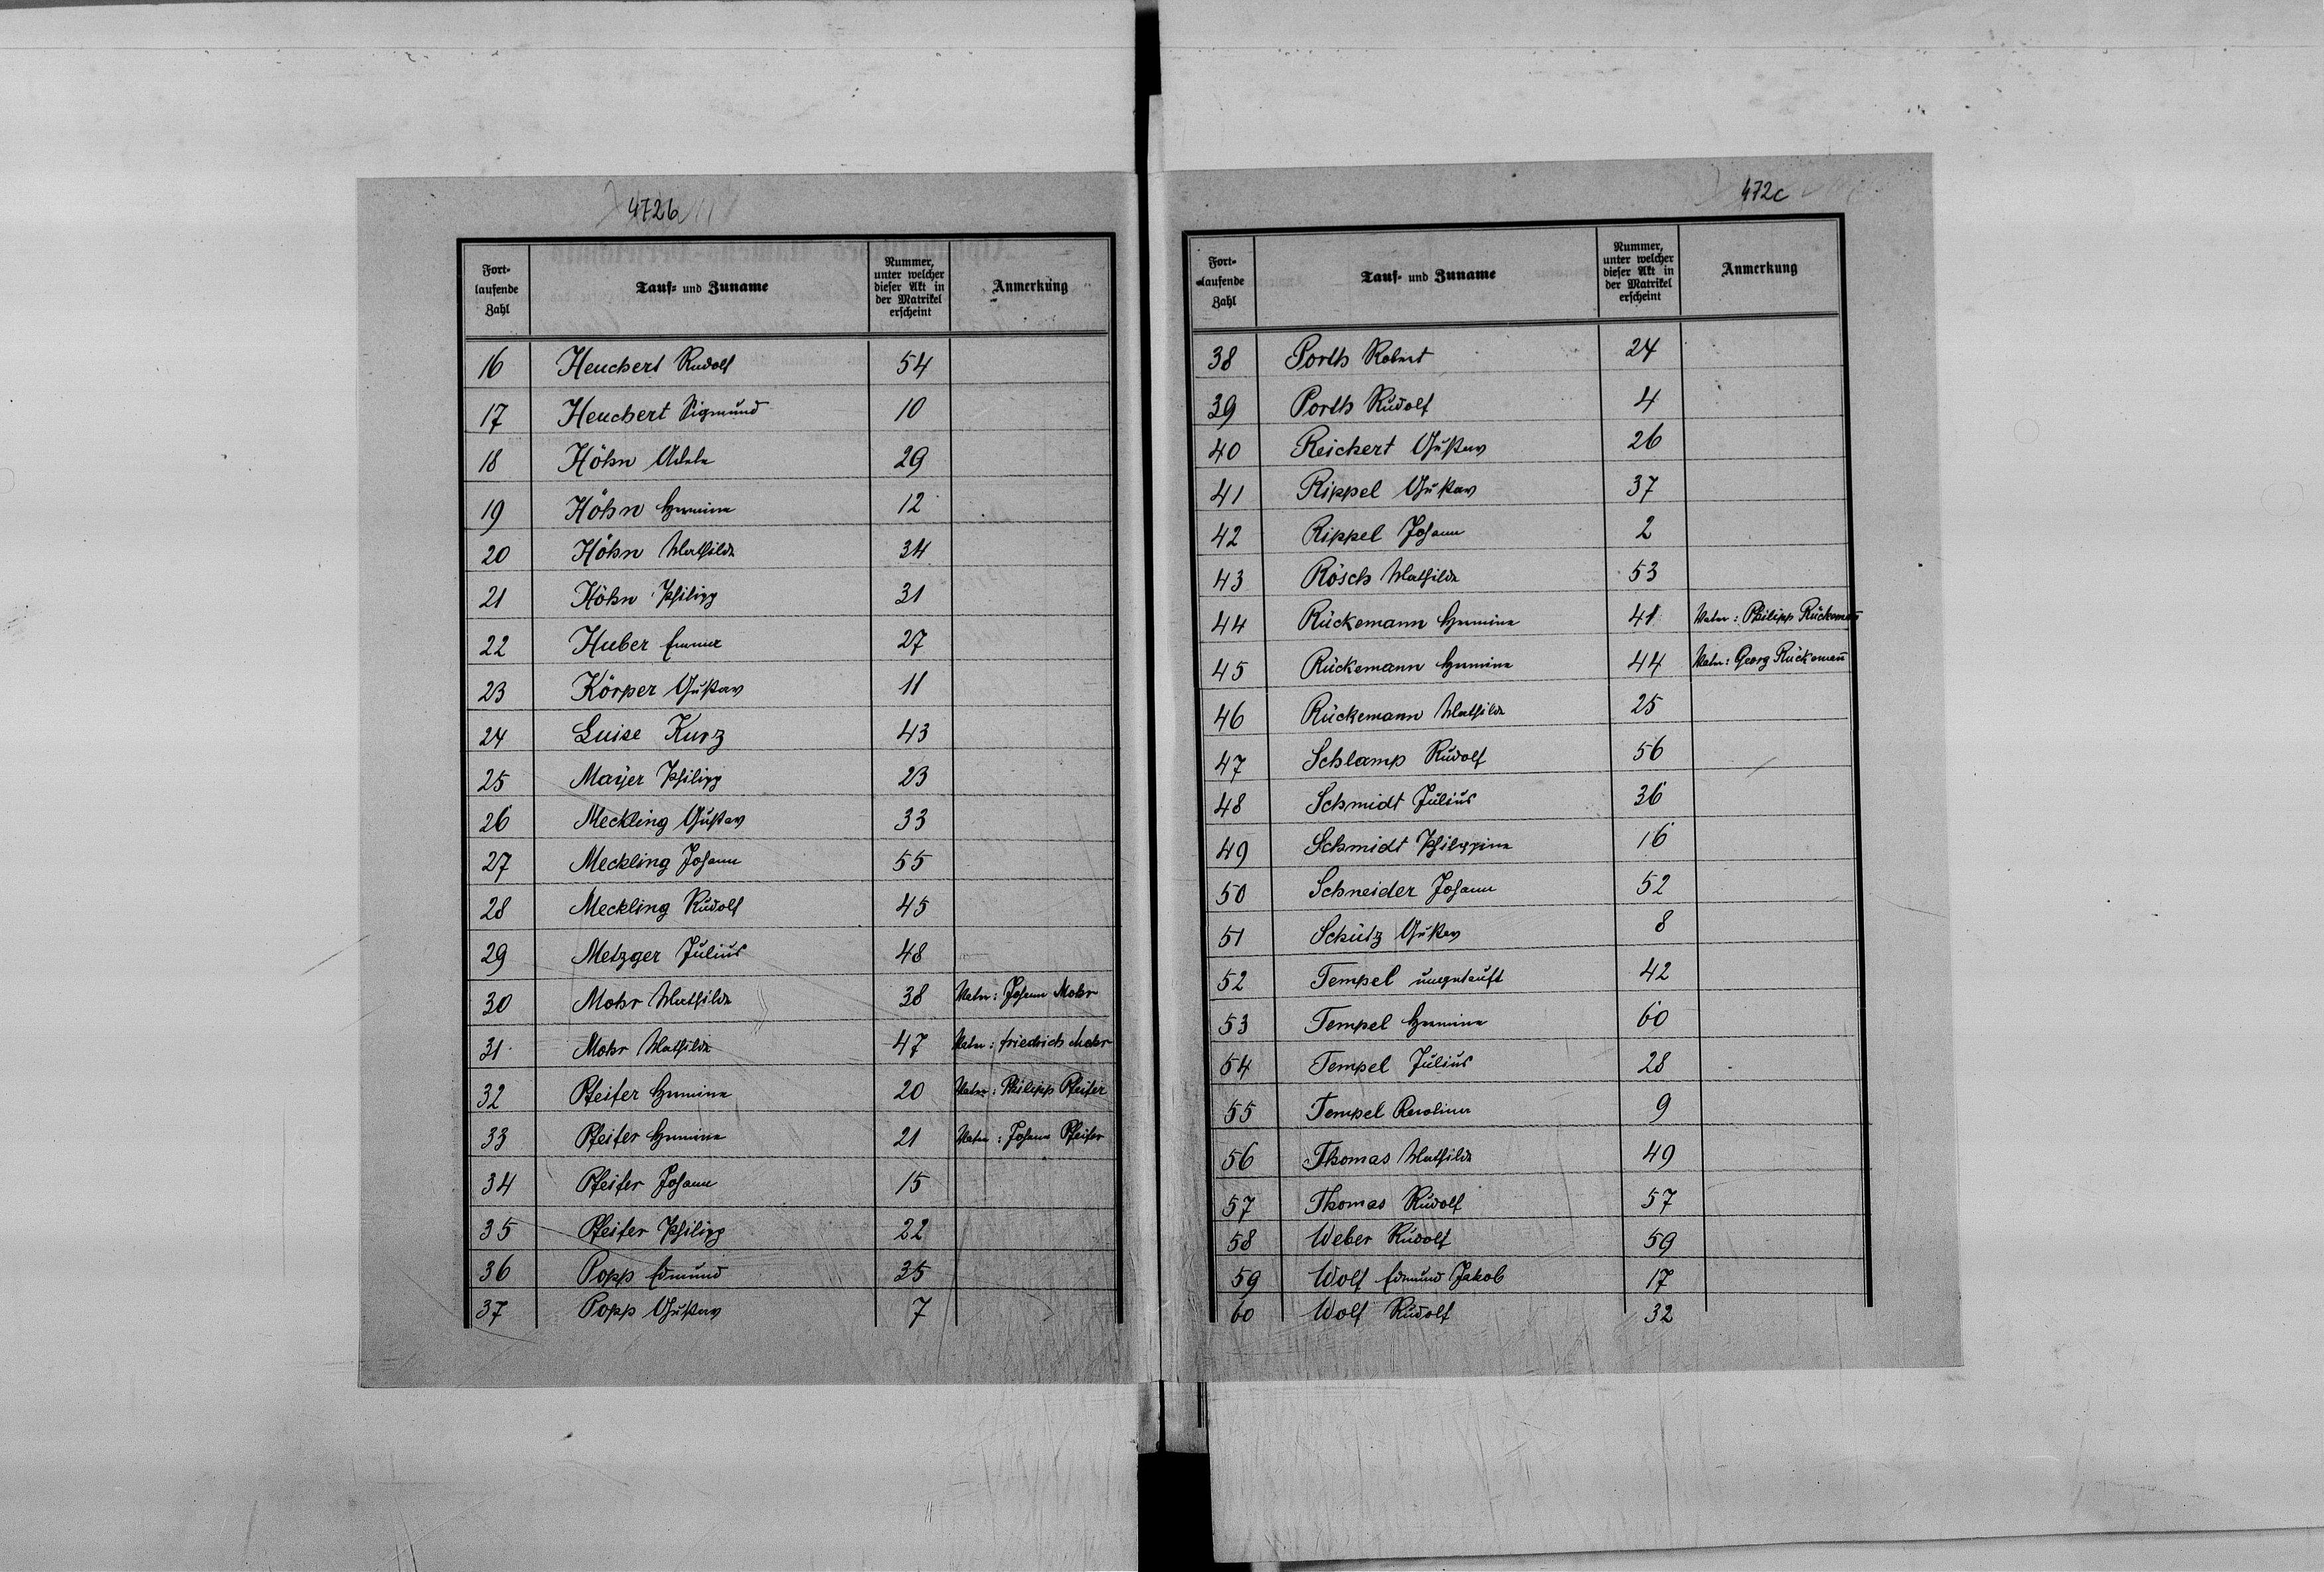 472b
Fort-
laufende
Zahl
Tauf- und Zuname
Nummer,
unter welcher
dieser Akt in
der Matrikel
erscheint
Anmerkung
16 Heuchert Rudolf 54
17 Heuchert Sigmund 10
18 Höhn Adele 29
19 Höhn Hermine 12
20 Höhn Mathilde 34
21 Höhn Philipp 31
22 Huber Emma 27
23 Körper Gustav 11
24 Luise Kurz 43
25 Mayer Philipp 23
26 Meckling Gustav 33
27 Meckling Johann 55
28 Meckling Rudolf 45
29 Metzger Julius 48
30 Mohr Mathilde 38 Vater: Johann Mohr
31 Mohr Mathilde 47 Vater: Friedrich Mohr
32 Pfeifer Hermine 20 Vater: Philipp Pfeifer
33 Pfeifer Hermine 21 Vater: Johann Pfeifer
34 Pfeifer Johann 15
35 Pfeifer Philipp 22
36 Popp Edmund 35
37 Popp Gustav 7
472c
Fort-
laufende
Zahl
Tauf- und Zuname
Nummer,
unter welcher
dieser Akt in
der Matrikel
erscheint
Anmerkung
38 Porth Robert 24
39 Porth Rudolf 4
40 Reichert Gustav 26
41 Rippel Gustav 37
42 Rippel Johann 2
43 Rösch Mathilde 53
44 Rückemann Hermine 41 Vater: Philipp Rückeman̄
45 Rückemann Hermine 44 Vater: Georg Rückeman̄
46 Rückemann Mathilde 25
47 Schlamp Rudolf 56
48 Schmidt Julius 36
49 Schmidt Philippine 16
50 Schneider Johann 52
51 Schütz Gustav 8
52 Tempel ungetauft 42
53 Tempel Hermine 60
54 Tempel Julius 28
55 Tempel Karolina 9
56 Thomas Mathilde 49
57 Thomas Rudolf 57
58 Weber Rudolf 59
59 Wolf Edmund Jakob 17
60 Wolf Rudolf 32